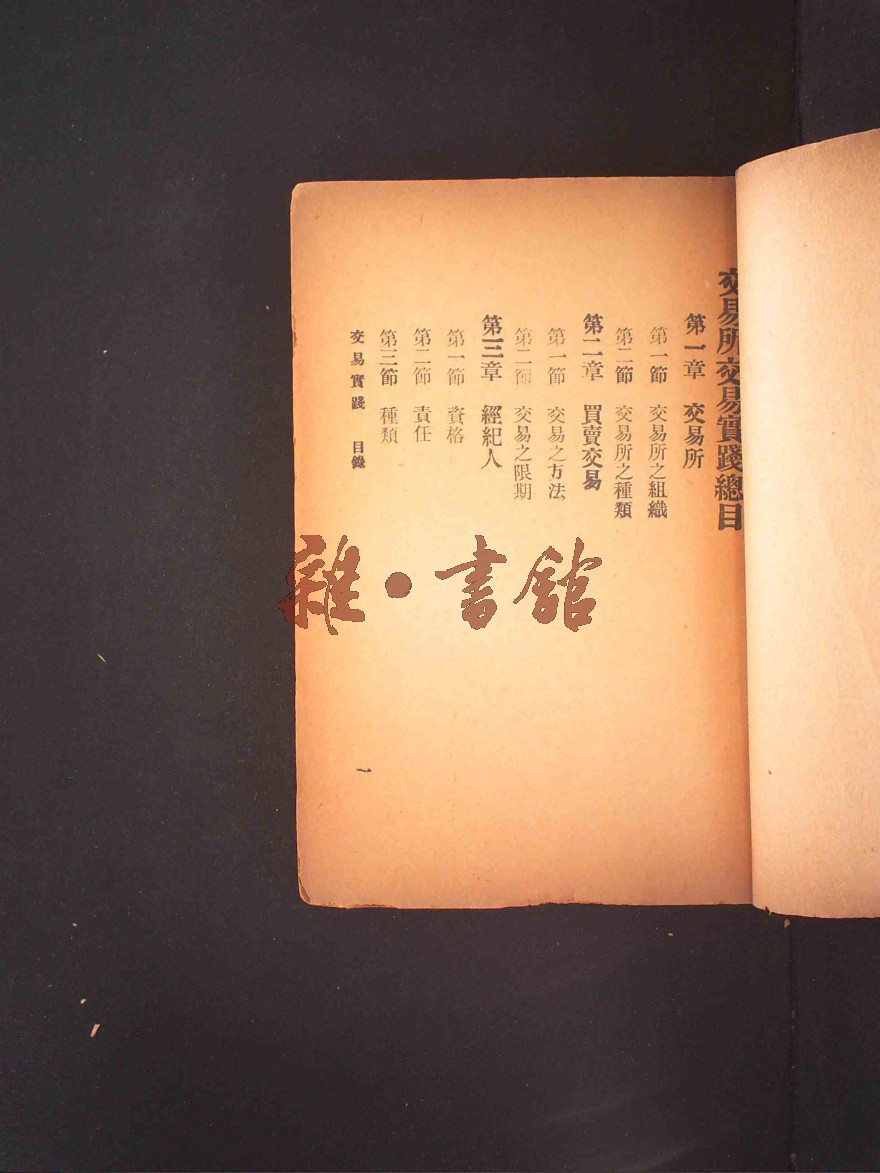 交易所交易實踐總目
第一章 交易所
第一節 交易所之組織
第二節 交易所之種類
第二章 買賣交易
第一節 交易之方法
第二節 交易之限期
第三章 經紀人
第一節 資格
第二節 責任
第三節 種類
交易實踐 目錄
一
雜·書館